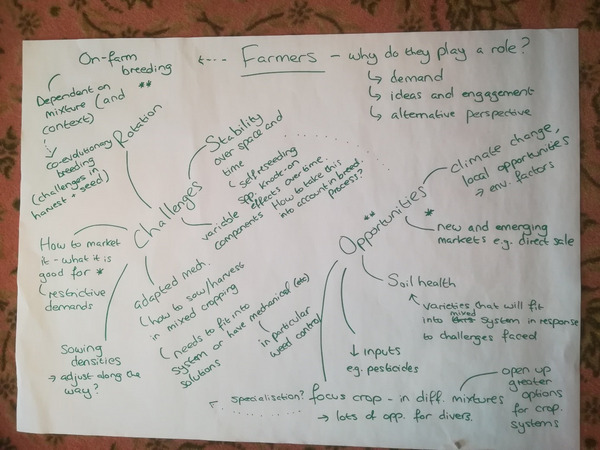 On-farm breeding **
Farmers - why do they play a role?
↳ demand
↳ ideas and engagement
↳ alternative perspective
Dependent on
mixture (and
context)
co-evolutionary
breeding
(challenges in
harvest + seed)
Rotation
Stability
over space and
time
self-reseeding
spp. knock-on
effects over time.
variable
components
How to take this
into account in breed.
process?
Challenges
How to market
it - what it is
good for *
restrictive
demands
Sowing
densities
→ adjust along the
way?
adapted mech.
how to sow/harvest
in mixed cropping
needs to fit into
system or have mechanical (etc)
solutions
in particular
weed control
Opportunities
**
climate change,
local opportunities
→ env. factors
*
new and emerging
markets e.g. direct sale
Soil health
varieties that will fit
into mixed system in response
to challenges faced
↓ inputs
eg. pesticides
specialisation? focus crop - in diff. mixtures
→ lots of opp. for divers.
open up
greater
options
for crop.
systems